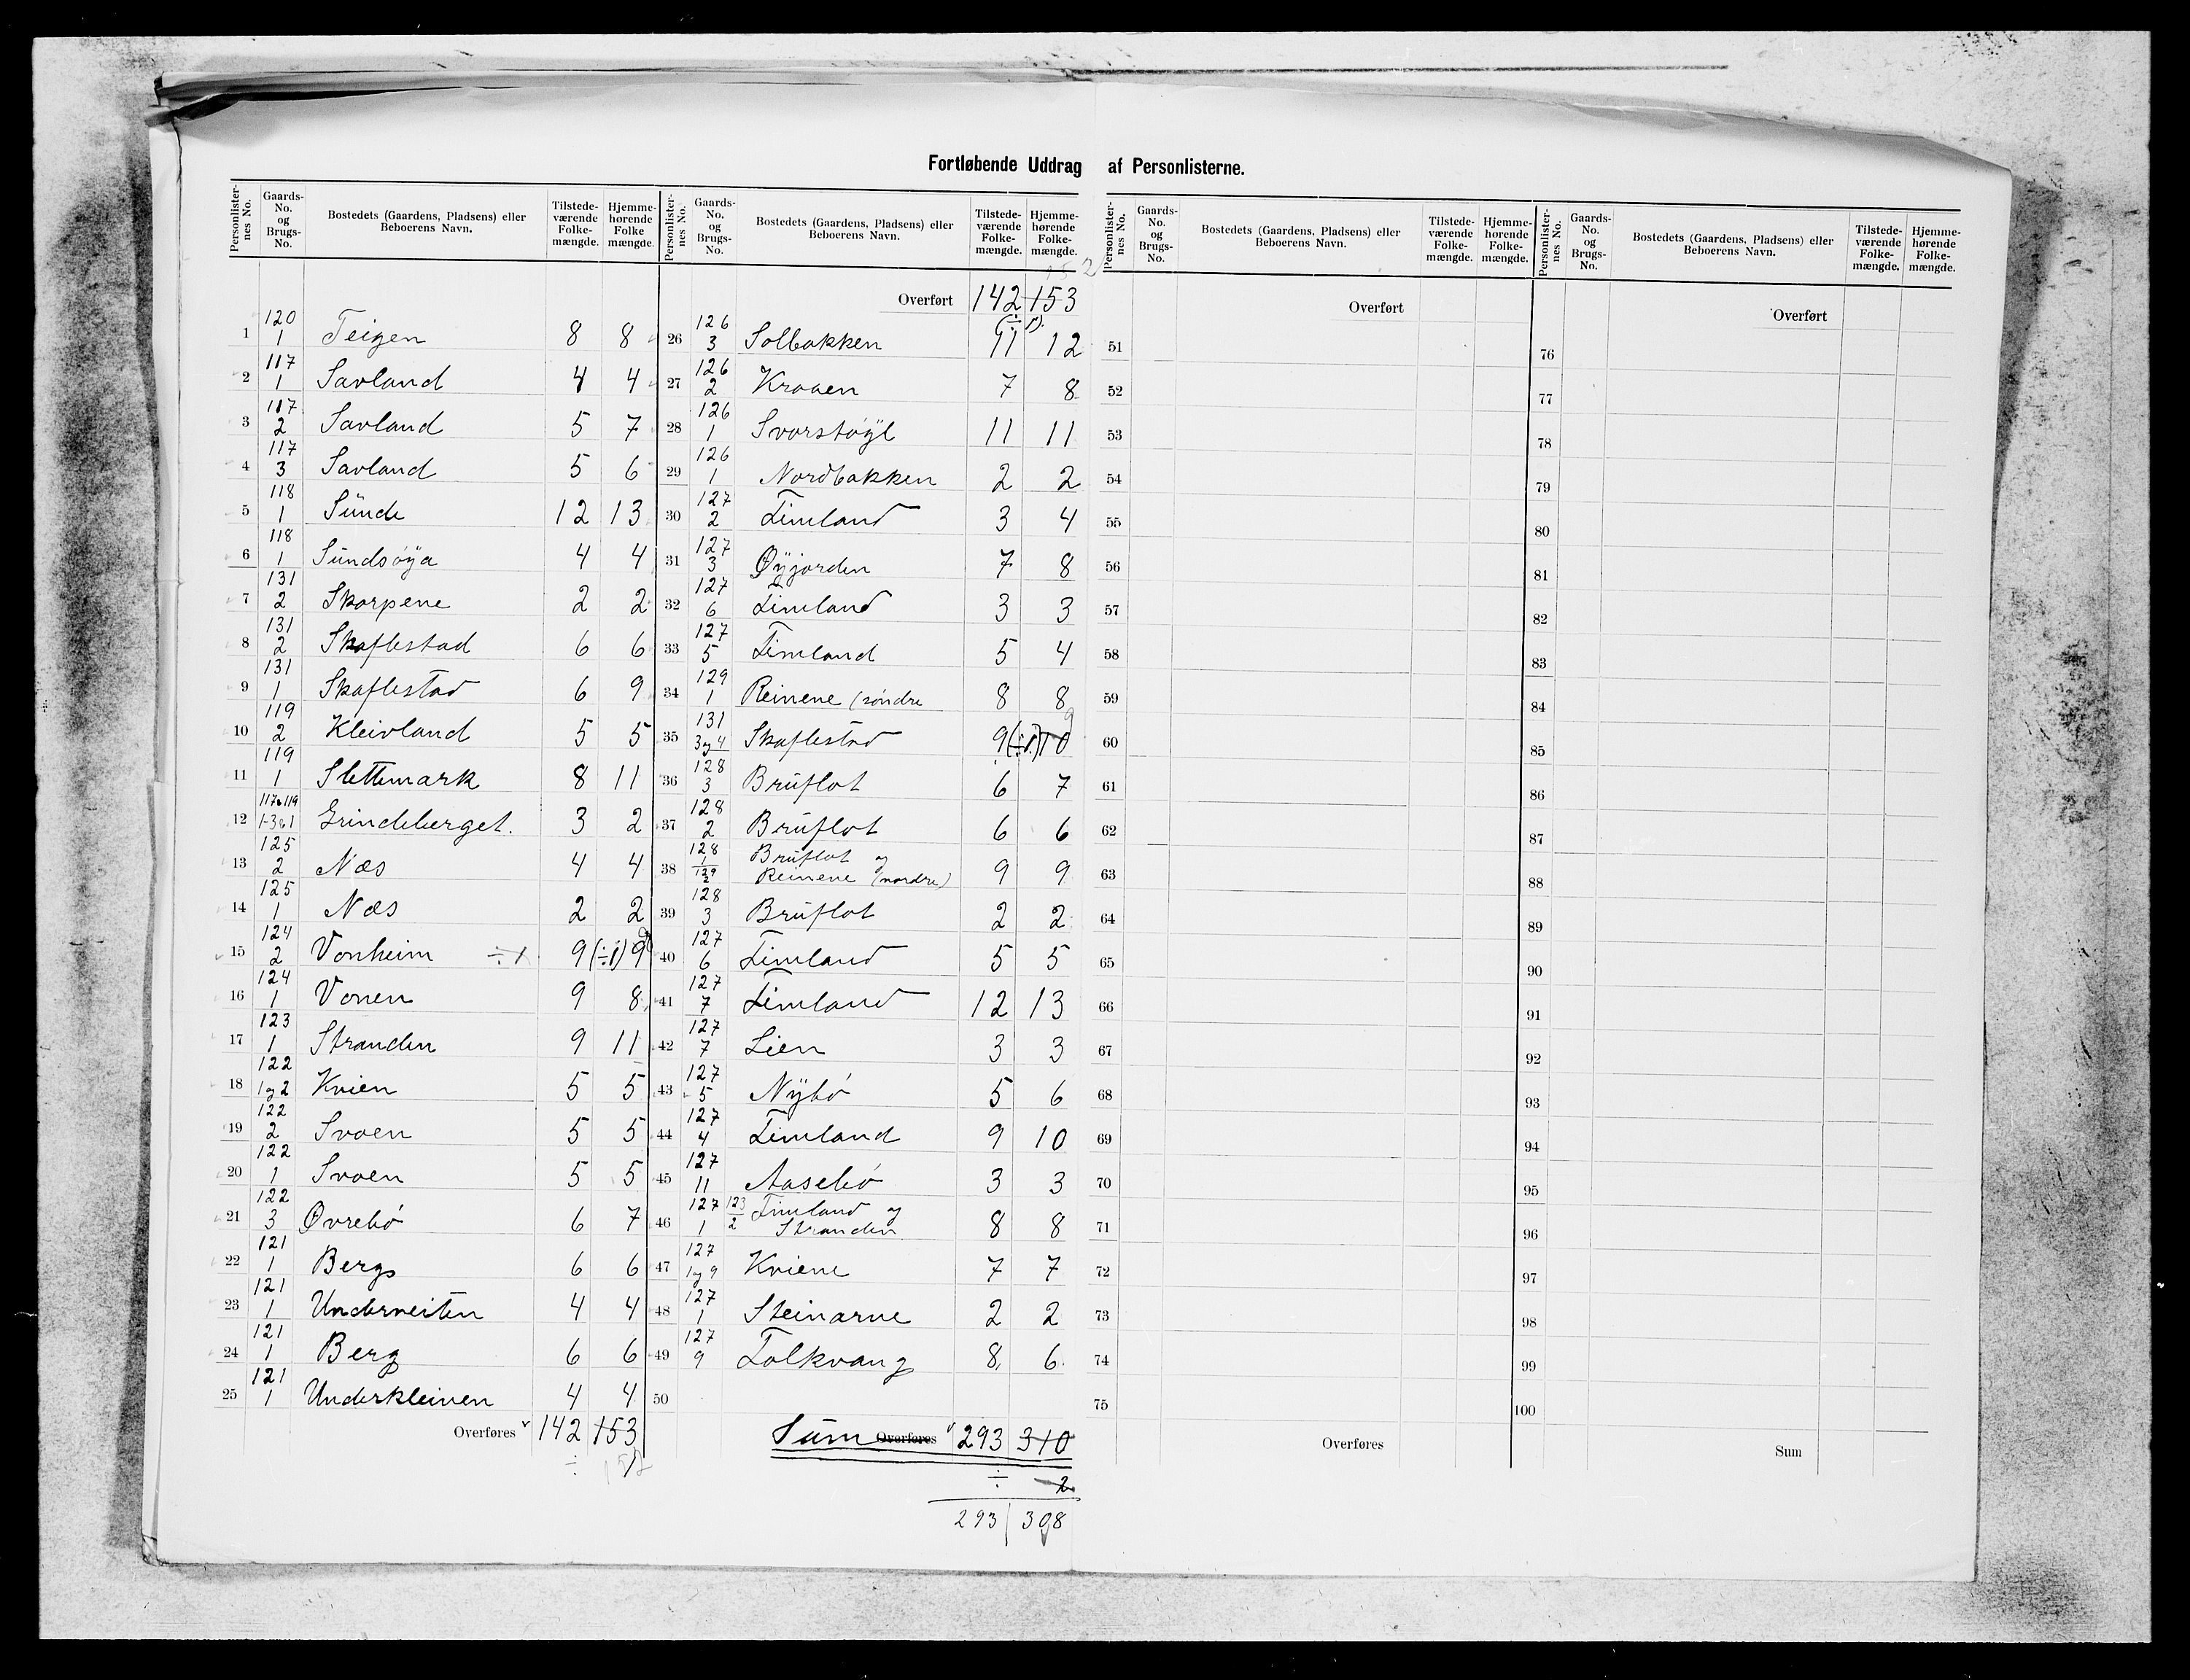 Fortløbende Uddrag af Personlisterne.
Personlisternes No. Gaards-No. og Brugs-No. Bostedets (Gaardens, Pladsens) eller Beboerens Navn. Tilstedeværende Folkemængde. Hjemmehørende Folkemængde.
1 120 1 Teigen 8 8
2 117 1 Savland 4 4
3 117 2 Savland 5 7
4 117 3 Savland 5 6
5 118 1 Sunde 12 13
6 118 1 Sundsøya 4 4
7 131 2 Skorpene 2 2
8 131 2 Skaflestad 6 6
9 131 1 Skaflestad 6 9
10 119 2 Kleivland 5 5
11 119 1 Slettemark 8 11
12 117 & 119 1-3 & 1 Grindeberget. 3 2
13 125 2 Næs 4 4
14 125 1 Næs 2 2
15 124 2 Vonheim ÷1 9 (÷1) 9
16 124 1 Vonen 9 8
17 123 1 Stranden 9 11
18 122 1 og 2 Kvien 5 5
19 122 2 Svoen 5 5
20 122 1 Svoen 5 5
21 122 3 Øvrebó 6 7
22 121 1 Berg 6 6
23 121 1 Underveiten 4 4
24 121 1 Berg 6 6
25 121 1 Underkleiven 4 4
Overføres 142 153
÷ 1
152
Personlisternes No. Gaards-No. og Brugs-No. Bostedets (Gaardens, Pladsens) eller Beboerens Navn. Tilstedeværende Folkemængde. Hjemmehørende Folkemængde.
Overført 142 153
(÷ 1).
26 126 3 Solbakken 11 12
27 126 2 Kraaen 7 8
28 126 1 Svorstøyl 11 11
29 126 1 Nordbakken 2 2
30 127 2 Timland 3 4
31 127 3 Øyjorden 7 8
32 127 6 Timland 3 3
33 127 5 Timland 5 4
34 129 1 Reinene (søndre 8 8
35 131 3 og 4 Skaflestad 9 (÷1) 10 9
36 128 3 Bruflot 6 7
37 128 2 Bruflot 6 6
38 128 1 129 2 Bruflot og
Reinene (nordre) 9 9
39 128 3 Bruflot 2 2
40 127 6 Timland 5 5
41 127 7 Timland 12 13
42 127 7 Lien 3 3
43 127 5 Nybó 5 6
44 127 4 Timland 9 10
45 127 11 Aasebó 3 3
46 127 1 123 2 Timland og
Stranden 8 8
47 127 1 og 9 Kviene 7 7
48 127 1 Steinarne 2 2
49 127 9 Folkvang 8 6
50
Sum Overføres 293 310
÷ 2
293 308
Personlisternes No. Gaards-No. og Brugs-No. Bostedets (Gaardens, Pladsens) eller Beboerens Navn. Tilstedeværende Folkemængde. Hjemmehørende Folkemængde.
Overført
51
52
53
54
55
56
57
58
59
60
61
62
63
64
65
66
67
68
69
70
71
72
73
74
75
Overføres
Personlisternes No. Gaards-No. og Brugs-No. Bostedets (Gaardens, Pladsens) eller Beboerens Navn. Tilstedeværende Folkemængde. Hjemmehørende Folkemængde.
Overført
76
77
78
79
80
81
82
83
84
85
86
87
88
89
90
91
92
93
94
95
96
97
98
99
100
Sum